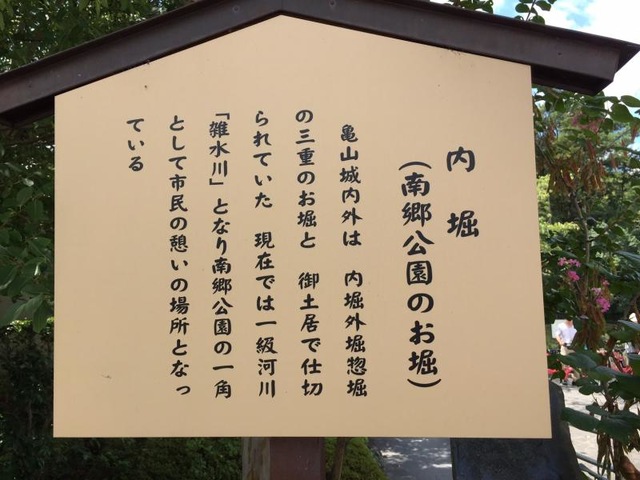 内堀
（南郷公園のお堀）
亀山城内外は　内堀外堀惣堀
の三重のお堀と　御土居で仕切
られていた　現在では一級河川
「雑水川」となり南郷公園の一角
として市民の憩いの場所となっ
ている